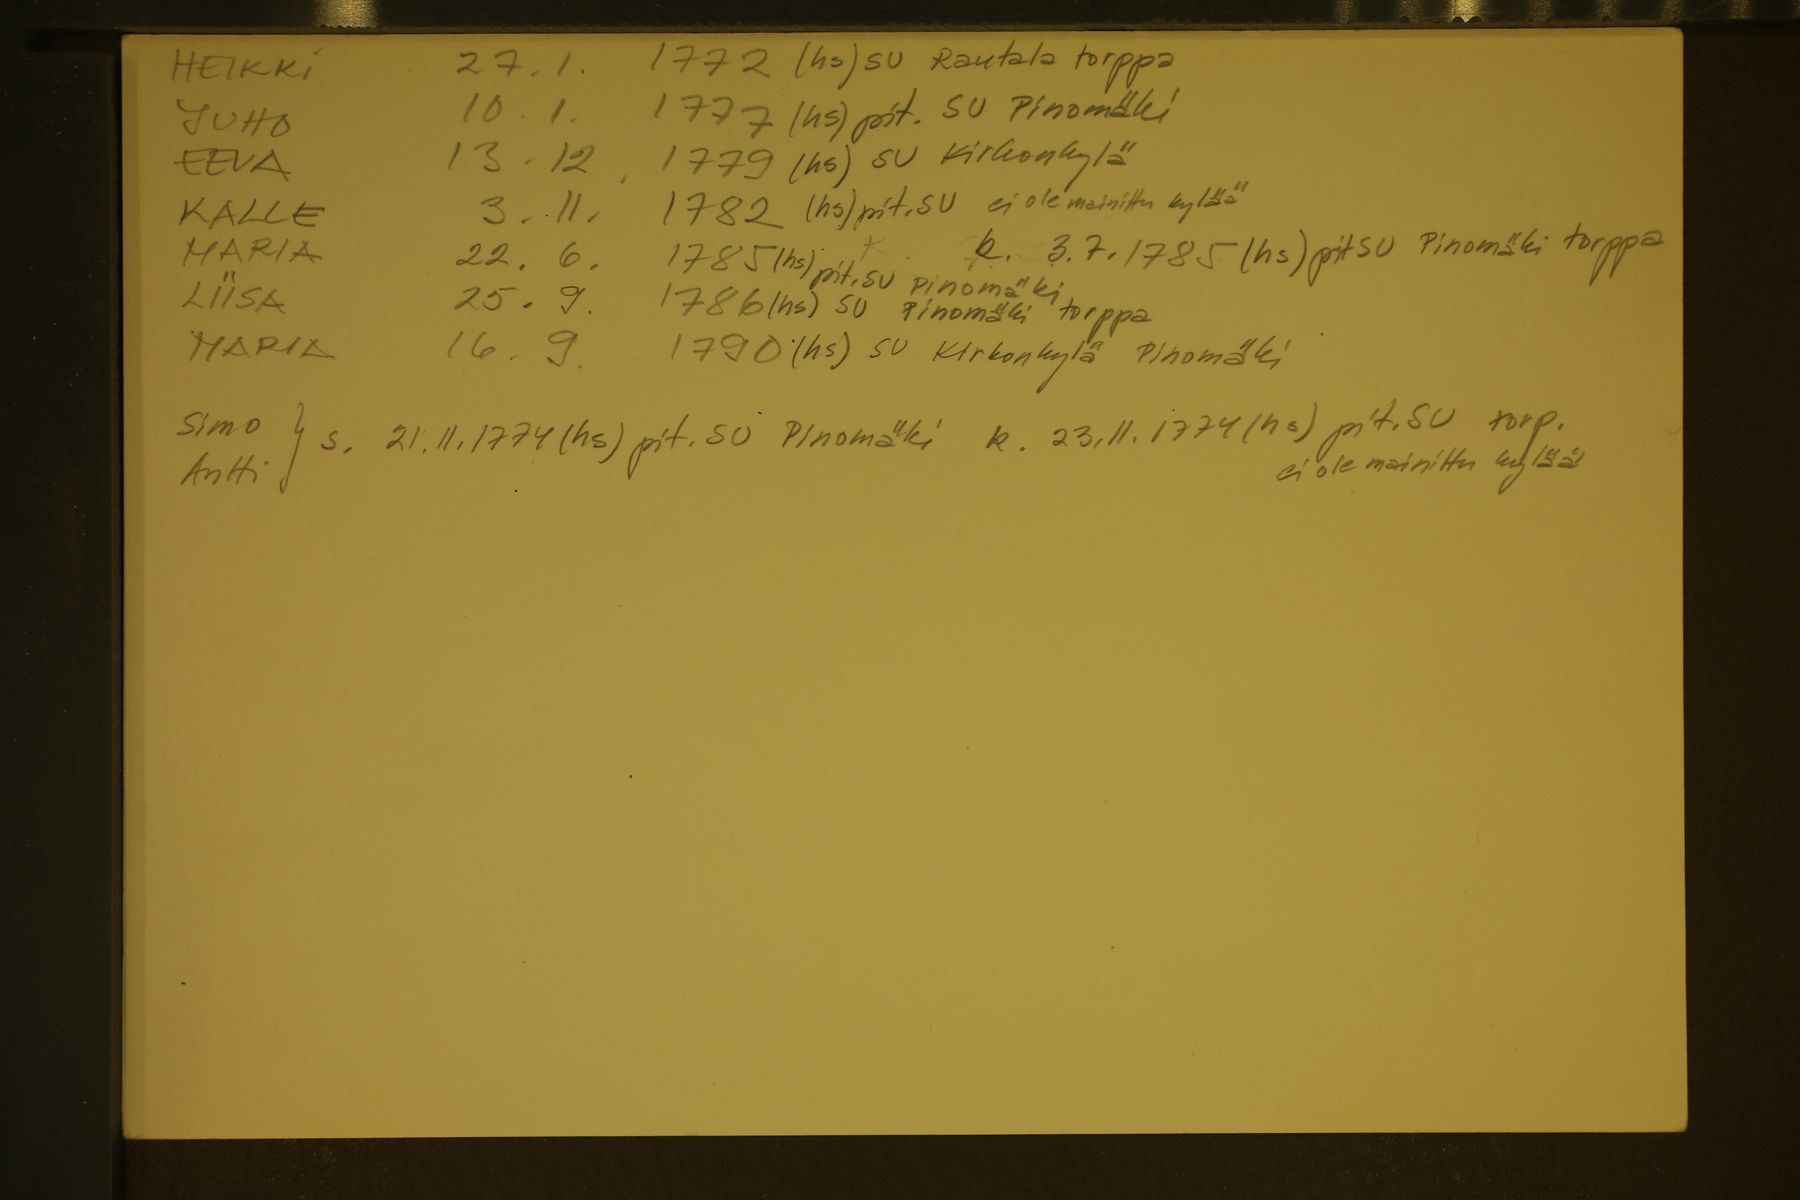 HEIKKI 27.1. 1772 (hs) SU Rautala torppa
JUHO 10.1. 1777 (hs) pit. SU Pinomäki
EEVA 13.12. 1779 (hs) SU Kirkonkylä
KALLE 3.11. 1782 (hs) pit. SU ei ole mainittu kylää
MARIA 22.6. 1785 (hs) pit. SU Pinomäki k. 3.7.1785 (hs) pit SU Pinomäki torppa
LIISA 25.9. 1786 (hs) SU Pinomäki torppa
MARIA 16.9. 1790 (hs) SU Kirkonkylä Pinomäki
Simo
Antti } s. 21.11.1774 (hs) pit. SU Pinomäki k. 23.11.1774 (hs) pit. SU torp.
ei ole mainittu kylää